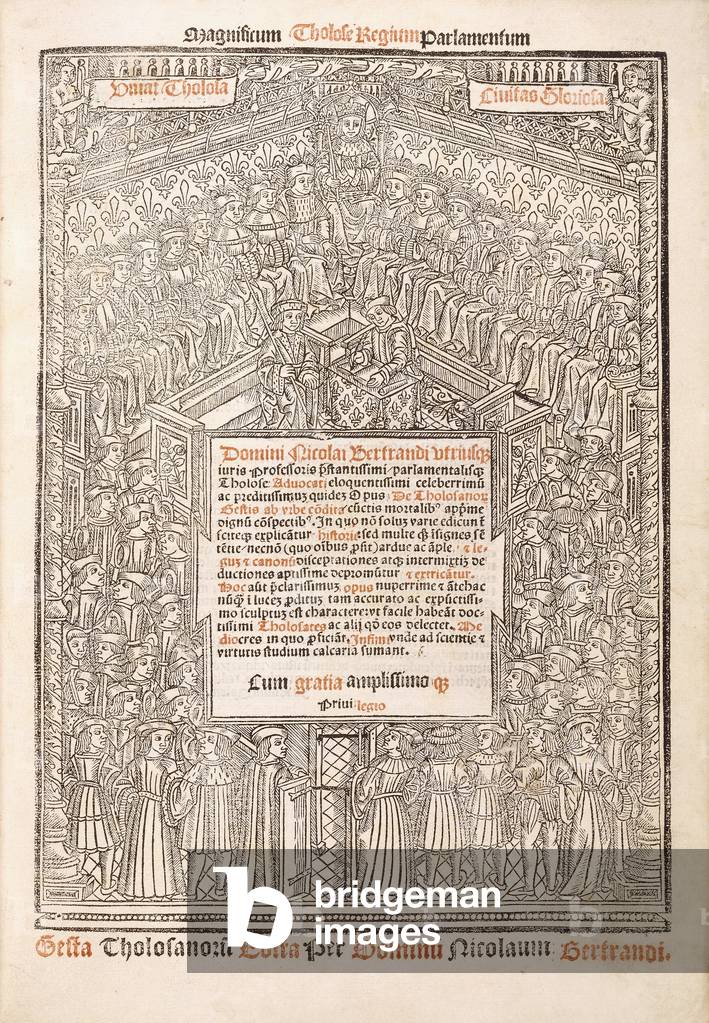 Magnificum Tholose Regium Parlamentum
Viuat Tholosa
Ciuitas Gloriosa
Domini Nicolai Bertrandi vtriusqꝫ
iuris Professoris p̄stantissimi/parlamentalisqꝫ
Tholose Aduocati eloquentissimi celeberrimū
ac preditissimuꝫ quideꝫ Opus De Tholosanoꝝ
Gestis ab vrbe cōdita cūctis mortalibꝰ appime
dignū cōspectibꝰ. In quo nō soluꝫ varie edicunt̄
sciteqꝫ explicātur historie sed multe qꝫ īsignes sē
tētie/necnō (quo oībus ꝓsūt) ardue ac āple ⁊ le-
guꝫ ⁊ canonū disceptationes atqꝫ intermixtis de
ductiones aptissime depromūtur ⁊ extricātur.
Hoc aūt p̄clarissimuꝫ opus nuperrime ⁊ ātehac
nūqꝫ ī luceꝫ ꝓditus tam accurato ac expūctissi-
mo sculptus est charactere: vt facile habeāt doc-
tissimi Tholosates ac alij qđ eos delectet. Me
diocres in quo ꝓficiāt. Infimi vnde ad scientie ⁊
virtutis studium calcaria sumant.
Cum gratia amplissimo qꝫ
Priuilegio
Gesta Tholosanorū
Per Dominū Nicolaum Bertrandi.
b
bridgeman
images